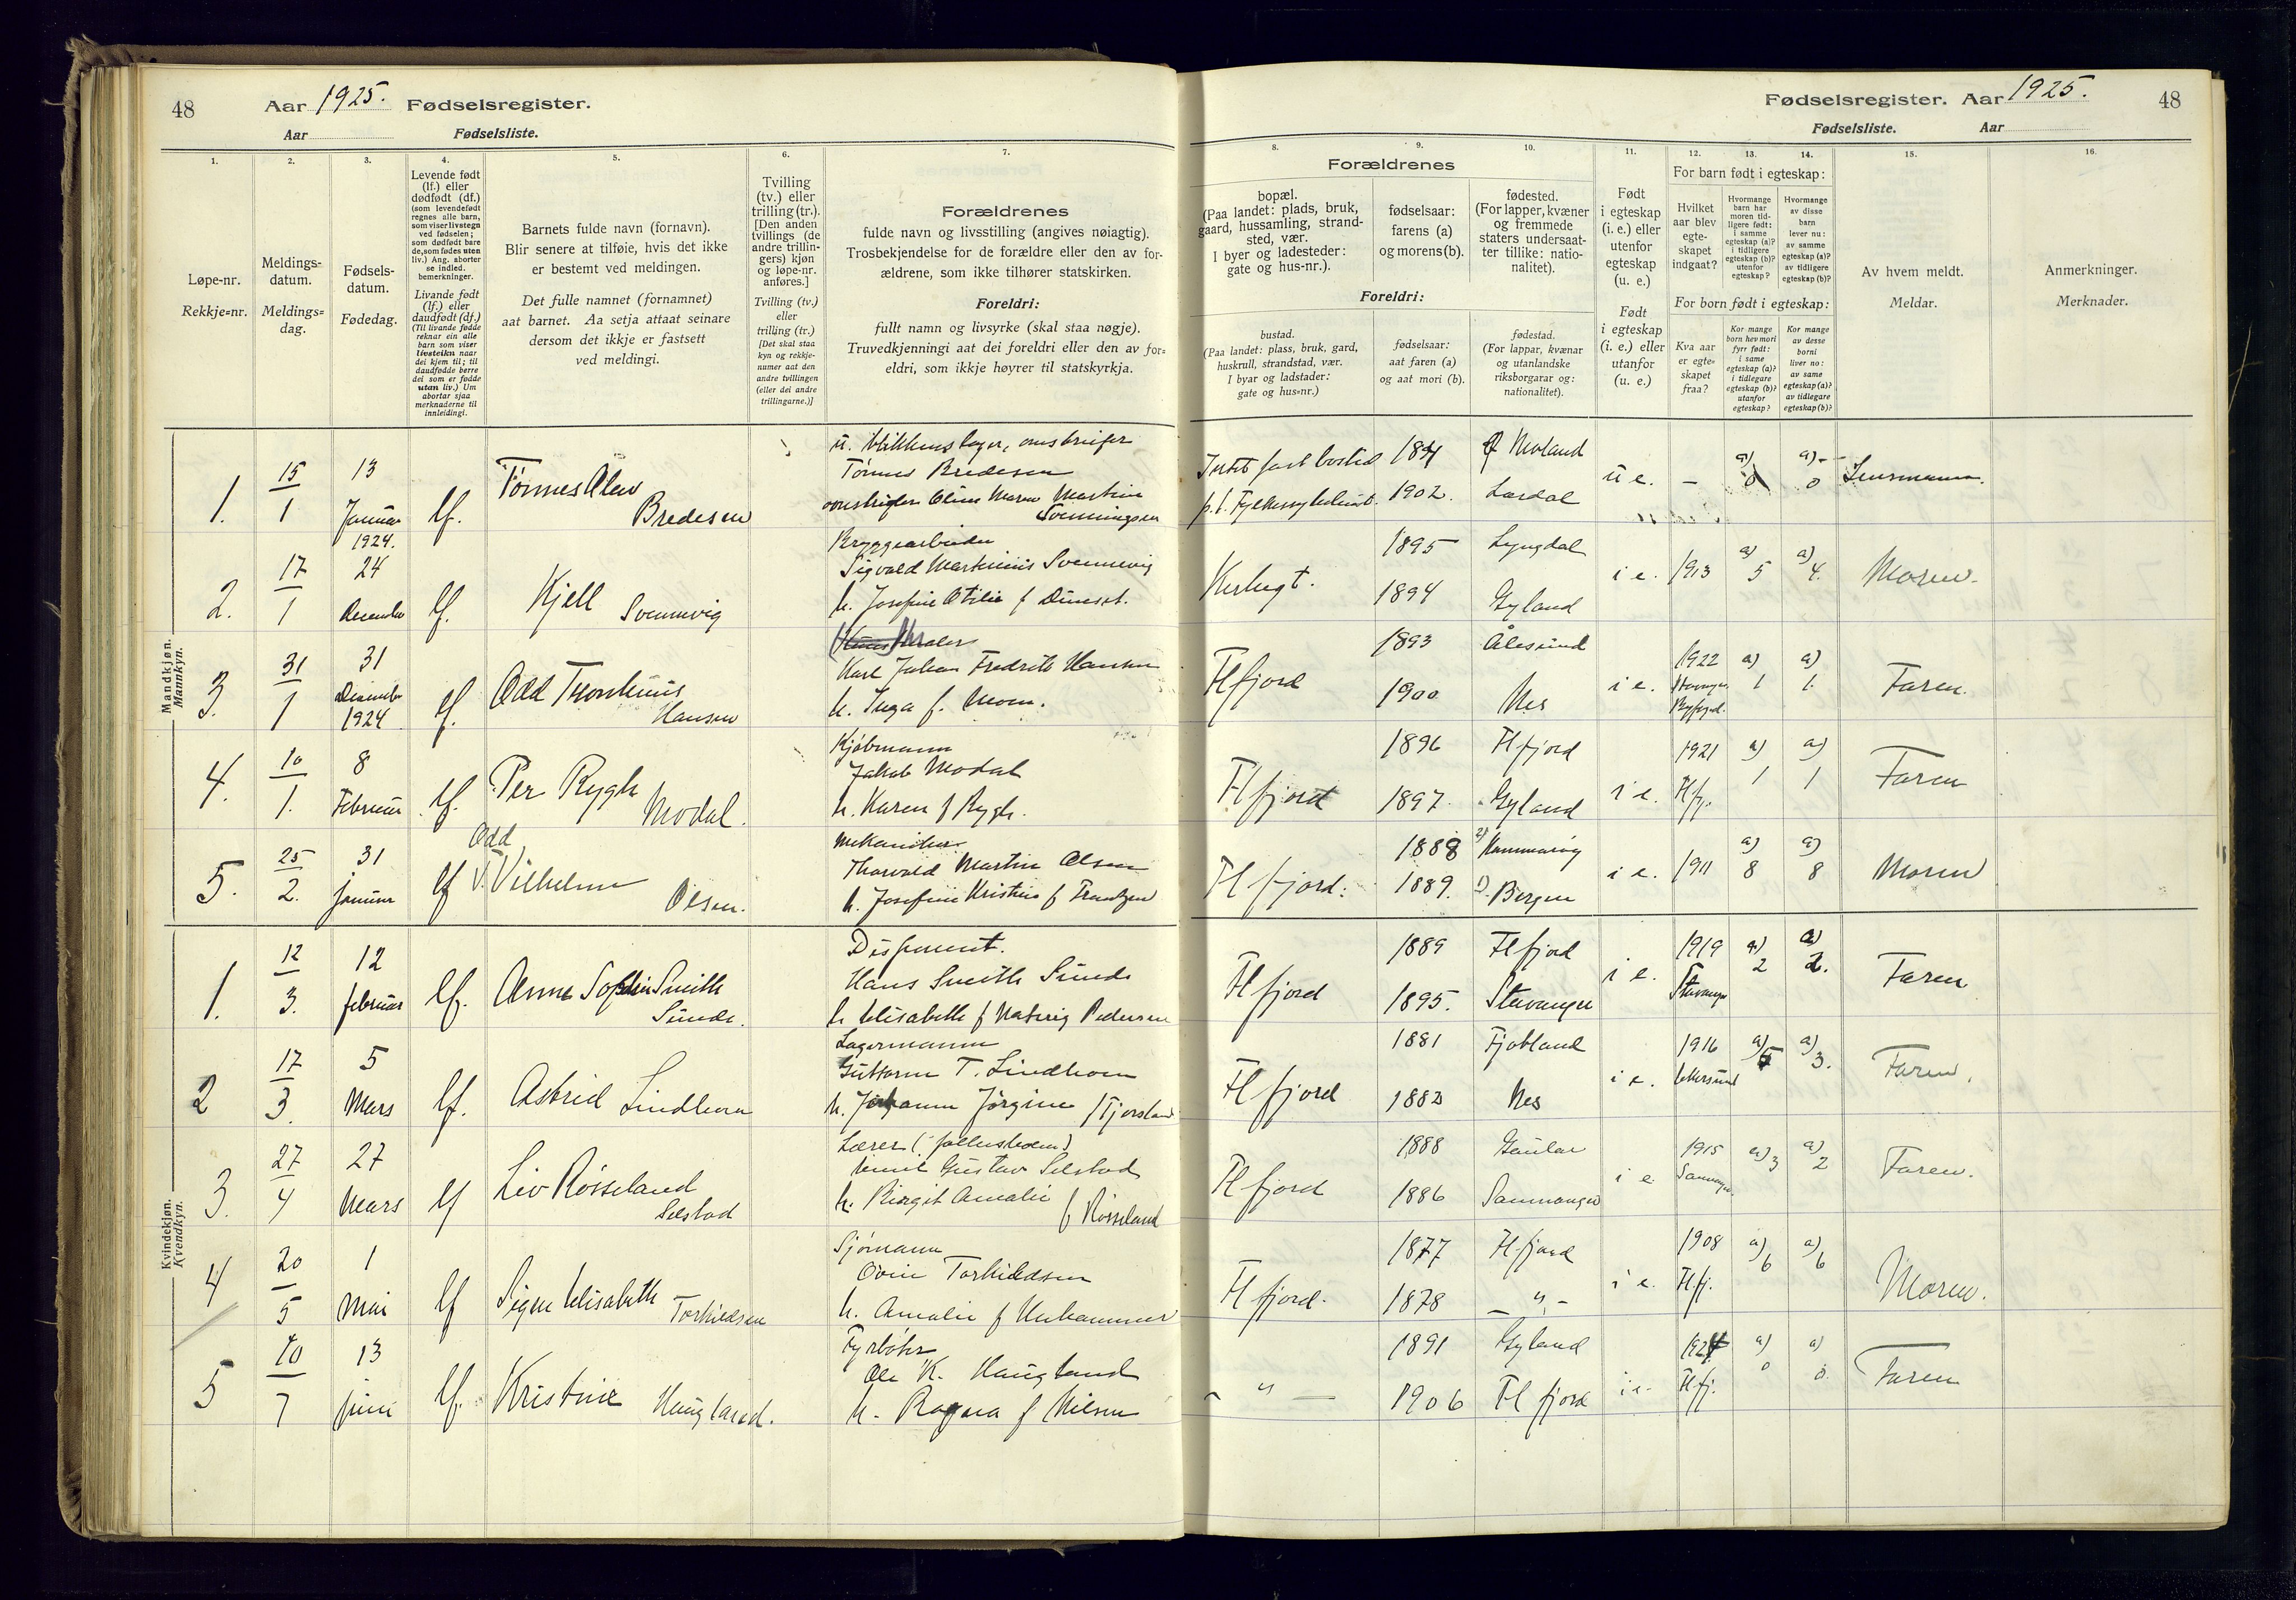 48 Aar 1925. Fødselsregister.
Aar Fødselsliste.
Fødselsregister. Aar 1925. 48
Fødselsliste. Aar
1. 2. 3. 4. 5. 6. 7.
Løpe-nr.
Rekkje=nr.
Meldings-
datum.
Meldings=
dag.
Fødsels-
datum.
Fødedag.
Levende født
(lf.) eller
dødfødt (df.)
(som levendefødt
regnes alle barn,
som viser livstegn
ved fødselen;
som dødfødt bare
de, som fødes uten
liv.) Ang. aborter
se indled.
bemerkninger.
Livande født
(lf.) eller
daudfødt (df.)
(Til livande fødde
reknar ein alle
barn som viser
livsteikn naar
dei kjem til; til
daudfødde berre
dei som er fødde
utan liv.) Um
abortar sjaa
merknaderne til
innleidingi.
Barnets fulde navn (fornavn).
Blir senere at tilføie, hvis det ikke
er bestemt ved meldingen.
Det fulle namnet (fornamnet)
aat barnet. Aa setja attaat seinare
dersom det ikkje er fastsett
ved meldingi.
Tvilling
(tv.) eller
trilling (tr.).
[Den anden
tvillings (de
andre trillin-
gers) kjøn
og løpe-nr.
anføres.]
Tvilling (tv.)
eller
trilling (tr.)
[Det skal staa
kyn og rekkje-
numer aat den
andre tvillingen
(eller dei andre
trillingarne.)]
Forældrenes
fulde navn og livsstilling (angives nøiagtig).
Trosbekjendelse for de forældre eller den av for-
ældrene, som ikke tilhører statskirken.
Foreldri:
fullt namn og livsyrke (skal staa nøgje).
Truvedkjenningi aat dei foreldri eller den av for=
eldri, som ikkje høyrer til statskyrkja.
8. 9. 10. 11. 12. 13. 14. 15. 16.
Forældrenes
bopæl.
(Paa landet: plads, bruk,
gaard, hussamling, strand-
sted, vær.
I byer og ladesteder:
gate og hus-nr.).
fødselsaar:
farens (a)
og morens (b).
fødested.
(For lapper, kvæner
og fremmede
staters undersaat-
ter tillike: natio-
nalitet).
Foreldri:
bustad.
(Paa landet: plass, bruk, gard,
huskrull, strandstad, vær.
I byar og ladstader:
gate og hus=nr.)
fødselsaar:
aat faren (a)
og aat mori (b).
fødestad.
(For lappar, kvænar
og utanlandske
riksborgarar og:
nationalitet).
Født
i egteskap
(i. e.) eller
utenfor
egteskap
(u. e.)
Født
i egteskap
(i. e.) eller
utanfor
(u. e.)
For barn født i egteskap:
Hvilket
aar blev
egte-
skapet
indgaat?
Hvormange
barn har
moren tid-
ligere født:
i samme
egteskap (a)?
i tidligere
egteskap (b)?
utenfor
egteskap?
Hvormange
av disse
barn
lever nu:
av samme
egteskap (a)?
av tidligere
egteskap (b)?
For born født i egteskap:
Kva aar
er egte=
skapet
fraa?
Kor mange
born hev mori
fyrr født:
i same
egteskap (a)?
i tidlegare
egteskap (b)?
utanfor
egteskap?
Kor mange
av desse
borni
liver no:
av same
egteskap (a)?
av tidlegare
egteskap (b)?
Av hvem meldt.
Meldar.
Anmerkninger.
Merknader.
Mandkjøn.
Mannkyn.
1. 15/1 13 Januar lf. Tønnes Olav Bredesen
omstreifer
Tønnes Bredesen
omstreifer Oline Maren Martine
Svenningsen
Intet fast bosted
1902. Moland
Lærdal
u e. – a) 0 a) – 0 Lensmannen.
2. 17/1 1924. 24 December lf. Kjell Svennevig
Bryggearbeider
Sigvald Martinius Svennevig
h. Josefine Otilie f Duneset.
1895 Lyngdal
1894 Gyland
i e. 1913 a) 5 a) 4. Moren.
3. 31/1 31 December 1924 lf. Odd Thorleines Hansen
Maler
Karl Johan Fredrik Hansen
h. Inga f. Moen.
Flfjord
1893 Ålesund
1900 Nes
i e. 1922 a) 1 a) 1. Faren.
4. 10/1. 8 Februar lf. Per Rygh Modal.
Kjøbmann
Jakob Modal
h. Karen f Rygh.
Flfjord
1896 Flfjord
1897. Gyland
i e. 1921 Flfj. a) 1 a) 1 Faren
5. 25/2. 31 januar lf Odd
V. Vilhelm Olsen.
Mekaniker
Thorvald Martin Olsen
h. Josefine Kristine f Frantzen
Flfjord.
1888 2)
1889. 1) Bergen
i e. 1911 a) 8 a) 8 Moren
Kvindekjøn.
Kvendkyn.
1. 12/3. 12 februar lf. Anne Sophie Smith Sunde.
Disponent.
Hans Smith Sunde
h Elisabeth f Pedersen
Flfjord
1889 Flfjord
1895. Stavanger
i e. 1919 Stavanger a) 2 a) 2. Faren
2 17/3. 5 Mars lf. Astrid Lindhom
Lagermann
Guttorm T. Lindhom
h. Johanne Jörgine f Fjorsland
Flfjord
1881 Fjotland
1882 Nes
i e. 1916 Ekersund a) 5 a) 3. Faren.
3. 27/4 27 Mars lf Liv Røsseland Selstad
Lærer
Emil Gustav Selstad
h. Birgit Amalie f Røsseland
Flfjord
1888 Gaular
1886 Samnanger
i e. 1915 Samnanger. a) 3 a) 2 Faren.
4 20/5 1 Mai lf Signe Elisabeth Torkildsen
Sjömann
Torkildsen
h. Amalie f Urhammer
Flfjord.
1877 Flfjord
1878 – " –
i e. 1908 Flfj. a) 6 a) 6 Moren.
5 10/7 13 juni lf. Kristine Haugland.
Fyrböter
Ole K. Haugland
h. Ragna f Nilsen
– " –
1891 Gyland
1906 Flfjord
i e. 1924 Flfj. a) 0 a) 0. Faren